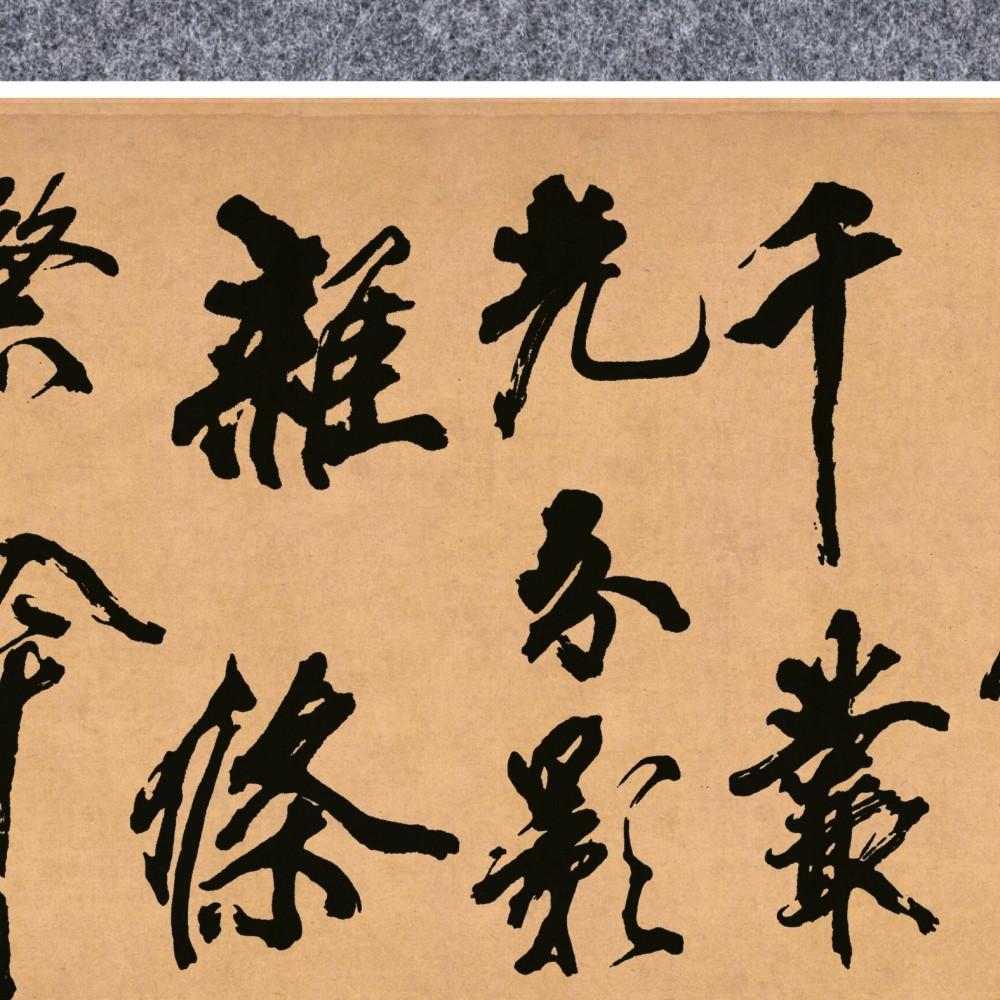 千叢
光分影
雜條
繁